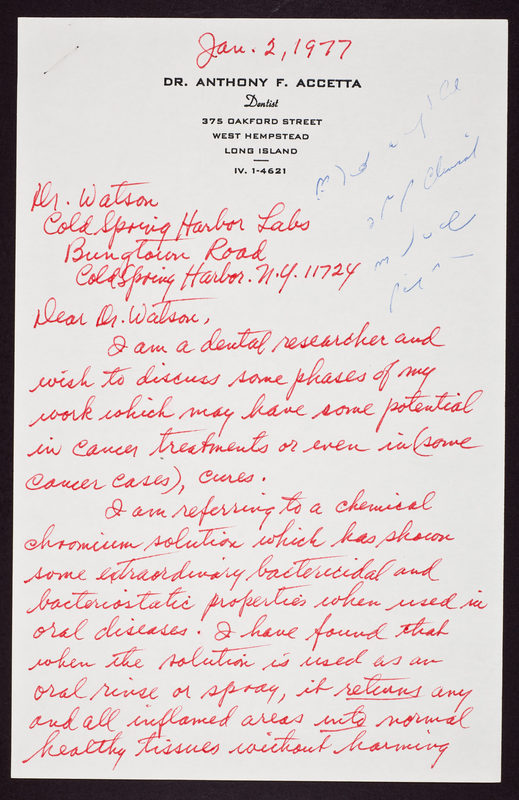 Jan. 2, 1977
DR. ANTHONY F. ACCETTA
Dentist
375 OAKFORD STREET
WEST HEMPSTEAD
LONG ISLAND
IV. 1-4621
Dr. Watson
Cold Spring Harbor Labs
Bungtown Road
Cold Spring Harbor. N.Y. 11724
Dear Dr. Watson,
I am a dental researcher and
wish to discuss some phases of my
work which may have some potential
in cancer treatments or even in (some
cancer cases), cures.
I am referring to a chemical
chromium solution which has shown
some extraordinary bactericidal and
bacteriostatic properties when used in
oral diseases. I have found that
when the solution is used as an
oral rinse or spray, it returns any
and all inflamed areas into normal
healthy tissues without harming